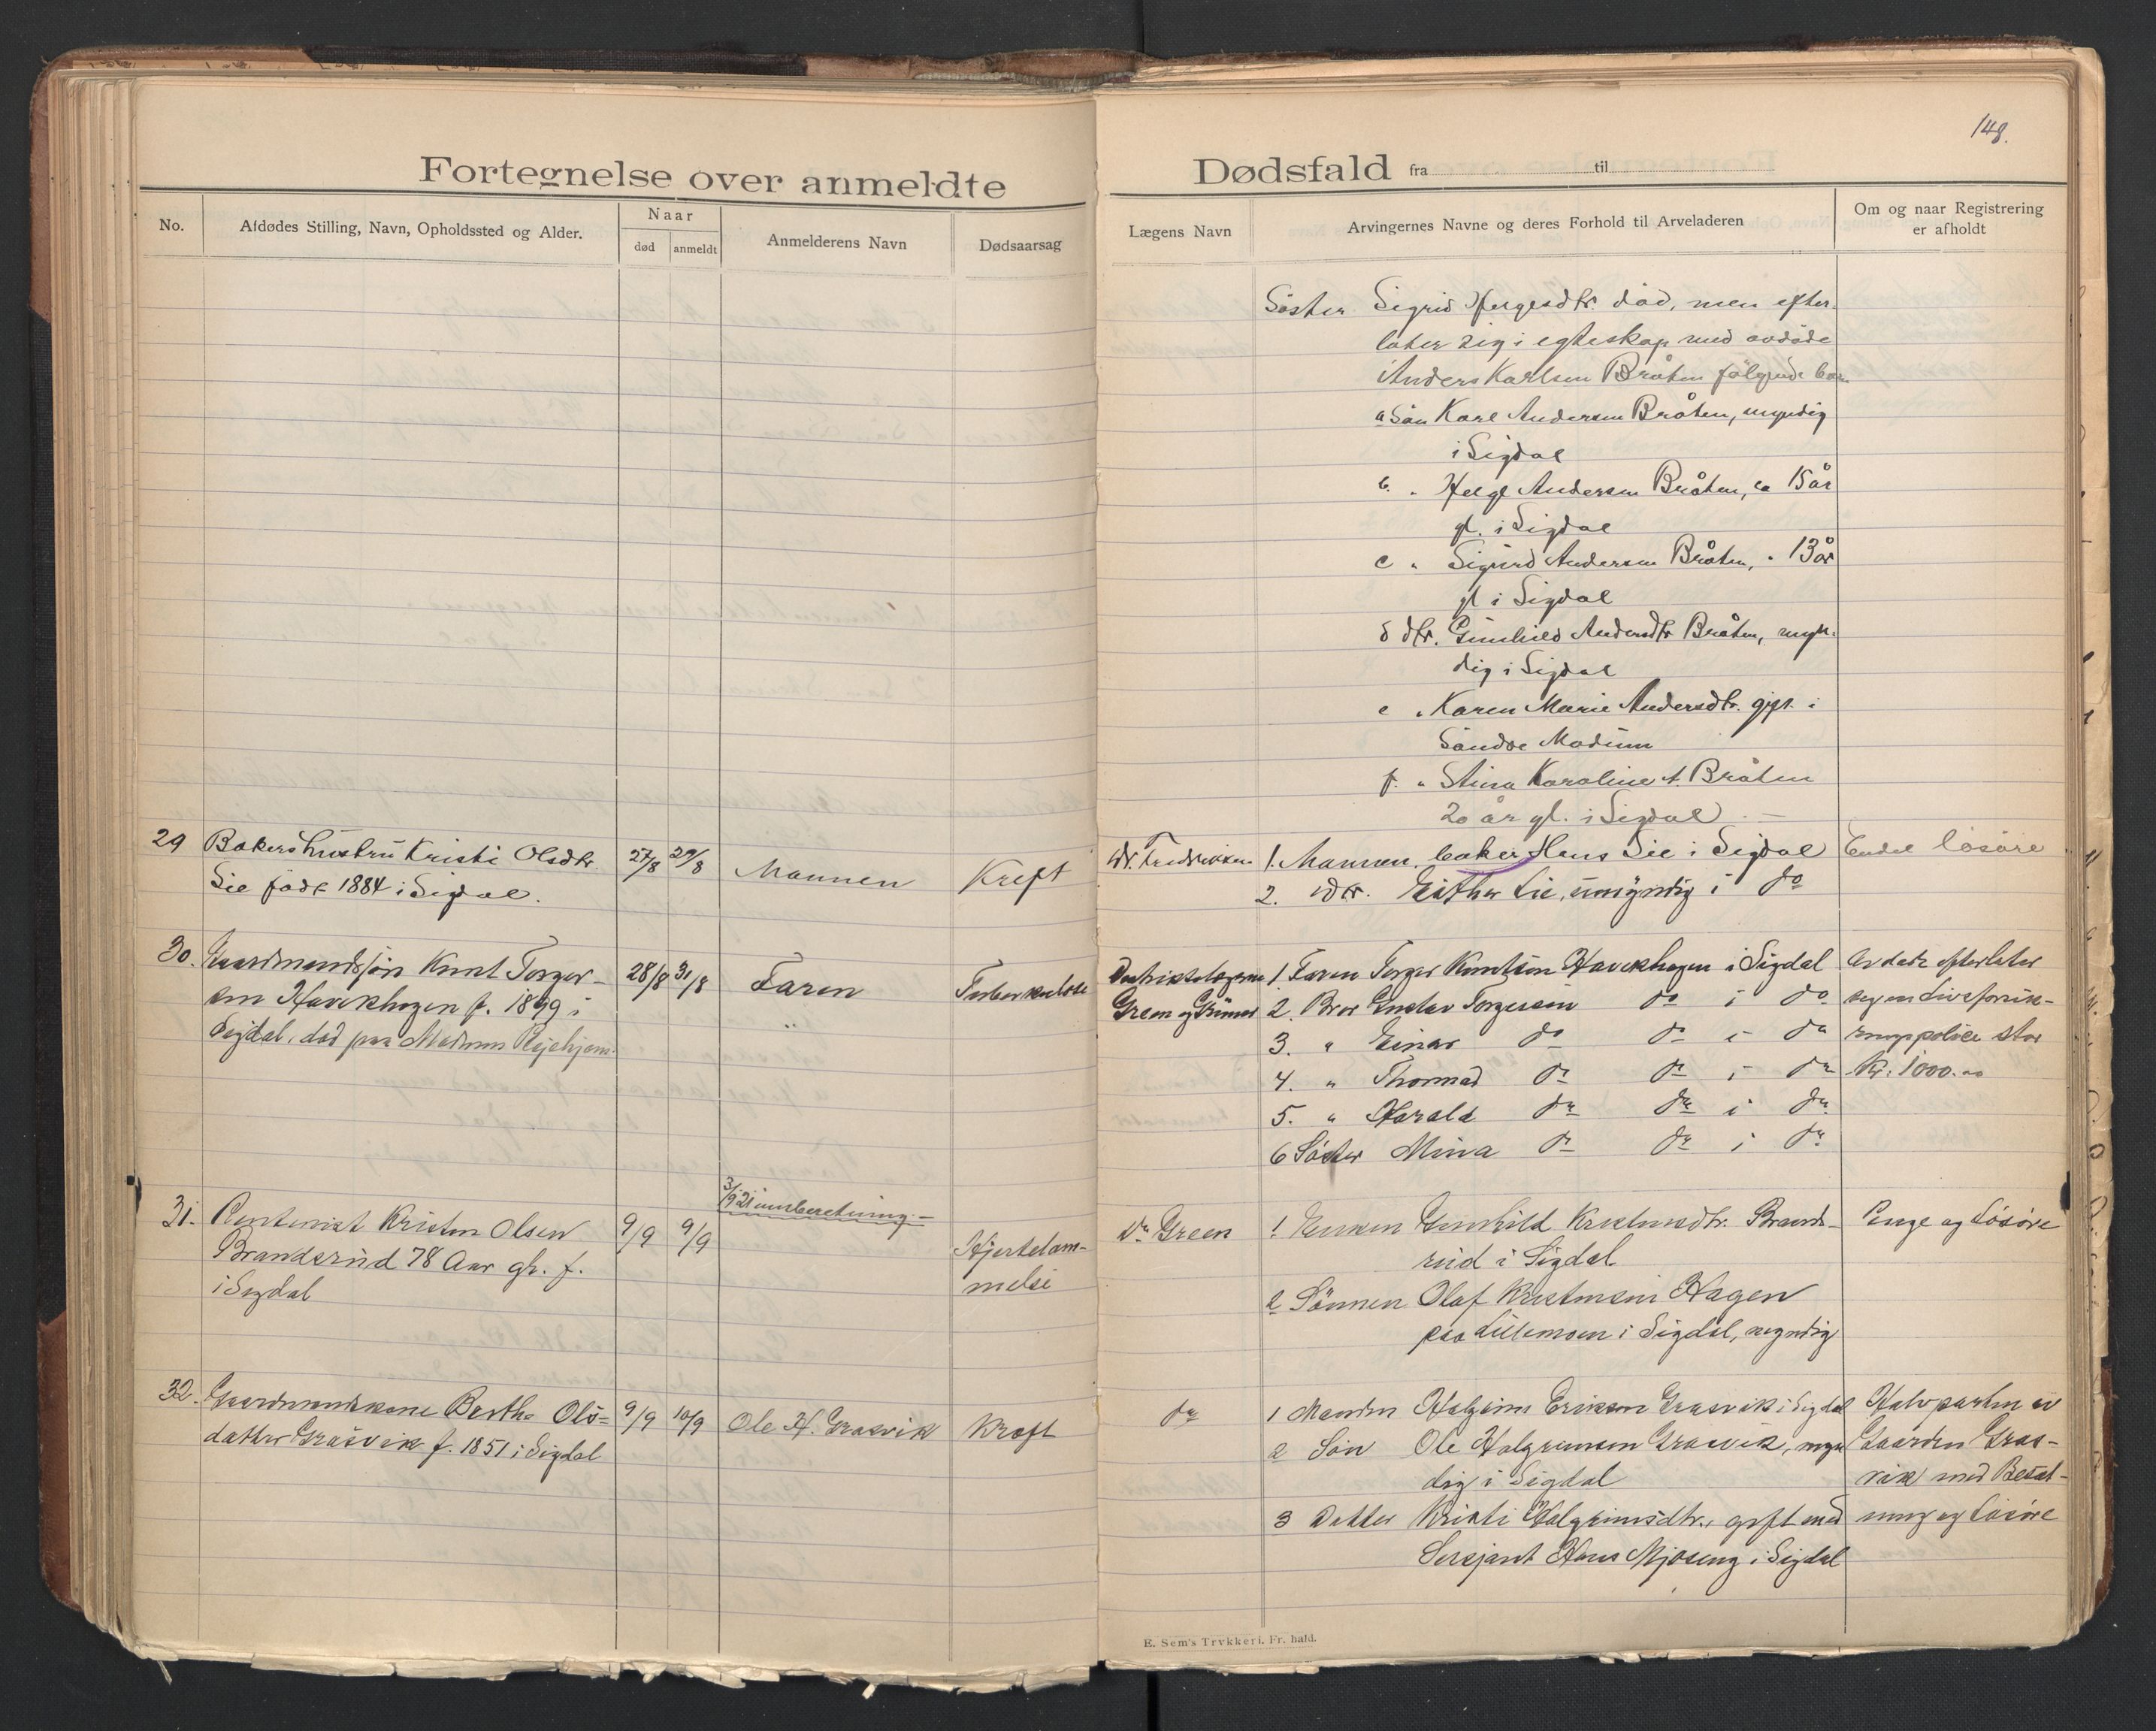 148.
Fortegnelse over anmeldte Dødsfald fra til
No.
Afdødes Stilling, Navn, Opholdssted og Alder.
Naar
død
anmeldt
Anmelderens Navn
Dødsaarsag
Lægens Navn
Arvingernes Navne og deres Forhold til Arveladeren
Om og naar Registrering
er afholdt
Söster Sigrid Helgesdtr. död, men efter-
later sig i egteskap med avdöde
Anders Karlsen Bråten fölgende barn
a Sön Karl Andersen Bråten, myndig
i Sigdal
b. " Helge Andersen Bråten, ca 15 år
gl. i Sigdal
c " Sigurd Andersen Bråten, " 13 år
gl i Sigdal
d dtr. Gunhild Andersdtr Bråten, myn-
dig i Sigdal
e " Karen Marie Andersdtr. gift i
Söndre Modum
f. " Stina Karoline A. Bråten
20 år gl. i Sigdal. —
29 Bakershustru Kristi Olsdtr.
Lie födt 1884 i Sigdal.
27/8 29/8
Mannen
Kreft
Dr. Fredriksen
1. Mannen, baker Hans Lie i Sigdal
2. Dtr. Esther Lie, umyndig i do
Endel lösöre
30. Gaardmandssön Knut Torger-
sen Haverhagen f. 1899 i
Sigdal, död paa Modum
28/8 31/8
Faren
"
Tuberkulose
Distriktslægerne
Green og
1. Faren Torger Knutsen Haverhagen i Sigdal
2. Bror Gustav Torgersen do i do
3. " Einar do do i do
4. " Thormod do do i do
5. " Harald do do i do
6 Söster Mina do do i do
Avdöde efterlater
sig en Livsforsik-
ringspolice stor
Kr. 1000.00
31. Rentenist Kristen Olsen
Brandsrud 78 Aar gl. f.
i Sigdal
9/9 9/9
3/9 21 innberetning —
Hjertelam-
melse
Dr Green
1 Enken Gunhild Kristensdtr. Brands-
rud i Sigdal
2 Sönnen Olaf Kristensen Hagen
paa Lillemoen i Sigdal, myndig
Penge og Lösöre
32. Gaardmandskone Berthe Ols-
datter Grasvik f. 1851 i Sigdal
9/9 10/9
Ole H. Grasvik
Kræft
do
1 Manden Halgrim Eriksen Grasvik i Sigdal
2 Sön Ole Halgrimsen Grasvik, myn
dig i Sigdal
3 Datter Kristi Halgrimsdtr., gift med
Sersjant Hans Mjöseng i Sigdal
Halvparten av
Gaarden Gras-
vik med Besæt-
ning og Lösöre
E. Sem's Trykkeri. Fr. hald.